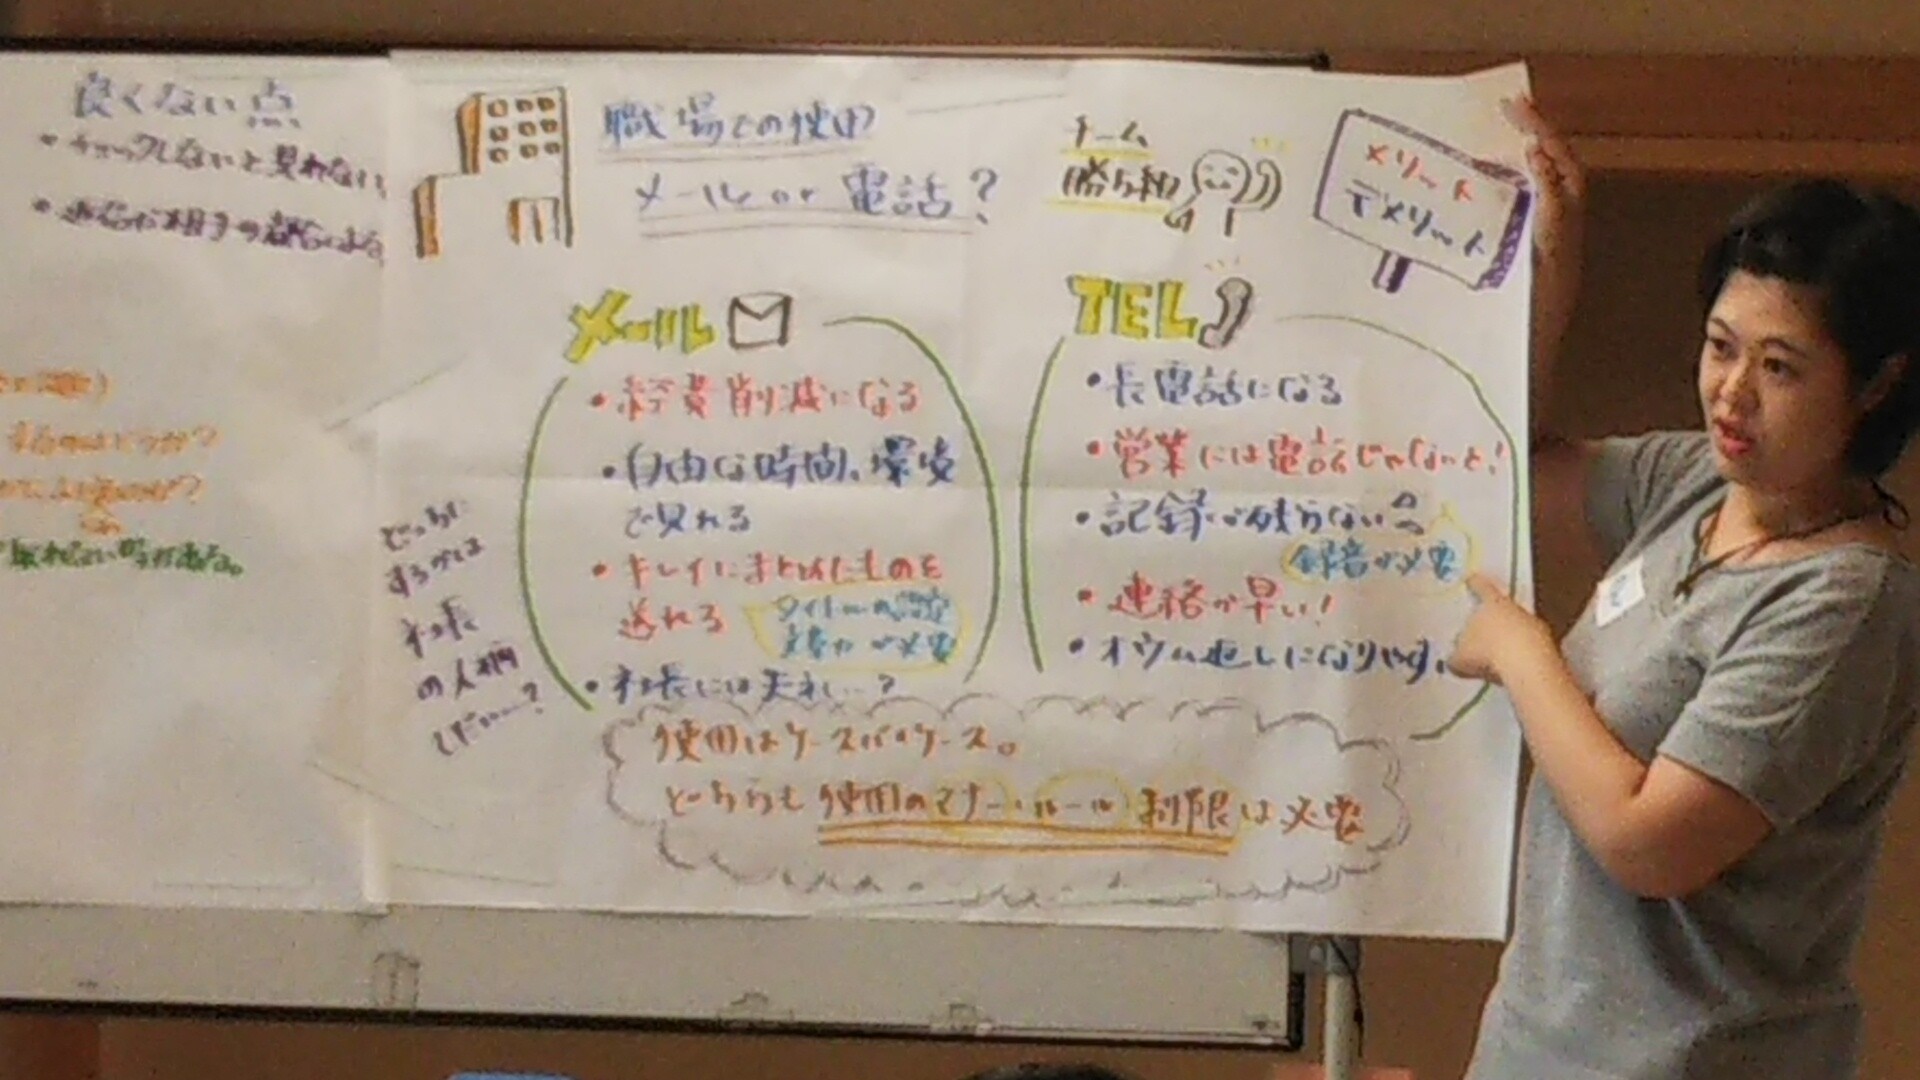 良くない点
・チェックしないと見れない
・返信が相手の都合による
するのはどうか?
取れない時がある。
職場での使用
メール or 電話?
チーム
勝ち組
メリット
デメリット
メール
・経費削減になる
・自由な時間、環境
で見れる
・キレイにまとめたものを
送れる
タイトルの設定
文章力が必要
・社長には失礼…?
どっちに
するかは
社長
の人柄
しだい…?
TEL
・長電話になる
・営業には電話じゃないと!
・記録が残らない
録音が必要
・連絡が早い!
・オウム返しになりやすい
使用はケースバイケース。
どちらも使用のマナー・ルール制限は必要